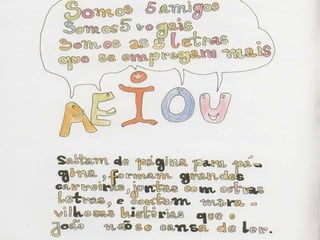 Somos 5 amigos
Somos 5 vogais
Somos as 5 letras
que se empregam mais
A E I O U
Saltam de página para pá-
gina, formam grandes
carreiras, juntas com outras
letras, e contam mara-
vilhosas histórias que o
joão não se cansa de ler.